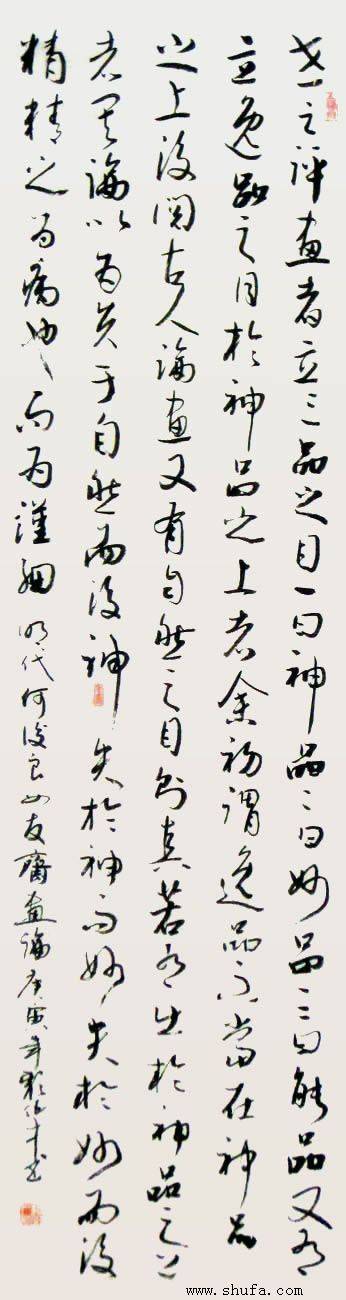 世之評畫者立三品之目一曰神品二曰妙品三曰能品又有
立逸品之目於神品之上者余初謂逸品不當在神品
之上後閱古人論畫又有自然之目則真若有出於神品之上
者其論以為失于自然而後神失於神而後妙失於妙而後
精精之為病也而為謹細 明代何俊良四友齋畫論庚寅年書
www.shufa.com